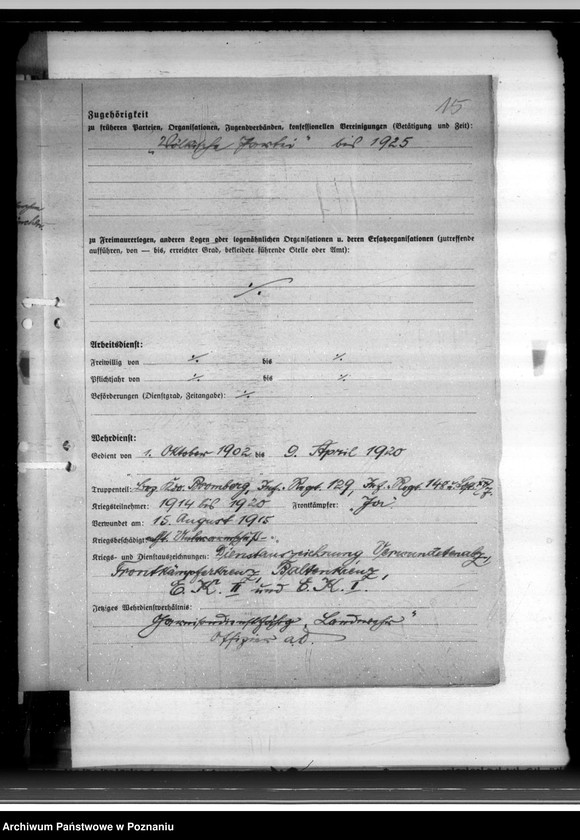 15
Zugehörigkeit
zu früheren Parteien, Organisationen, Jugendverbänden, konfessionellen Vereinigungen (Betätigung und Zeit):
„Völkische Partei" bis 1925
zu Freimaurerlogen, anderen Logen oder logenähnlichen Organisationen u. deren Ersatzorganisationen (zutreffende
aufführen, von — bis, erreichter Grad, bekleidete führende Stelle oder Amt):
./.
Arbeitsdienst:
Freiwillig von ./. bis ./.
Pflichtjahr von ./. bis ./.
Beförderungen (Dienstgrad, Zeitangabe): ./.
Wehrdienst:
Gedient von 1. Oktober 1902 bis 9. April 1920
Truppenteil: Bez. Kdo. Bromberg, Inf. Regt. 129, Inf. Regt. 148
Kriegsteilnehmer: 1914 bis 1920 Frontkämpfer: Ja
Verwundet am: 15. August 1915
Kriegsbeschädigt:
Kriegs- und Dienstauszeichnungen: Dienstauszeichnung, Verwundetenabz.,
Frontkämpferkreuz, Baltenkreuz,
E. K. II und E. K. I.
Jetziges Wehrdienstverhältnis:
Garnisondienstfähig „Landwehr"
Offizier a.D.
Archiwum Państwowe w Poznaniu